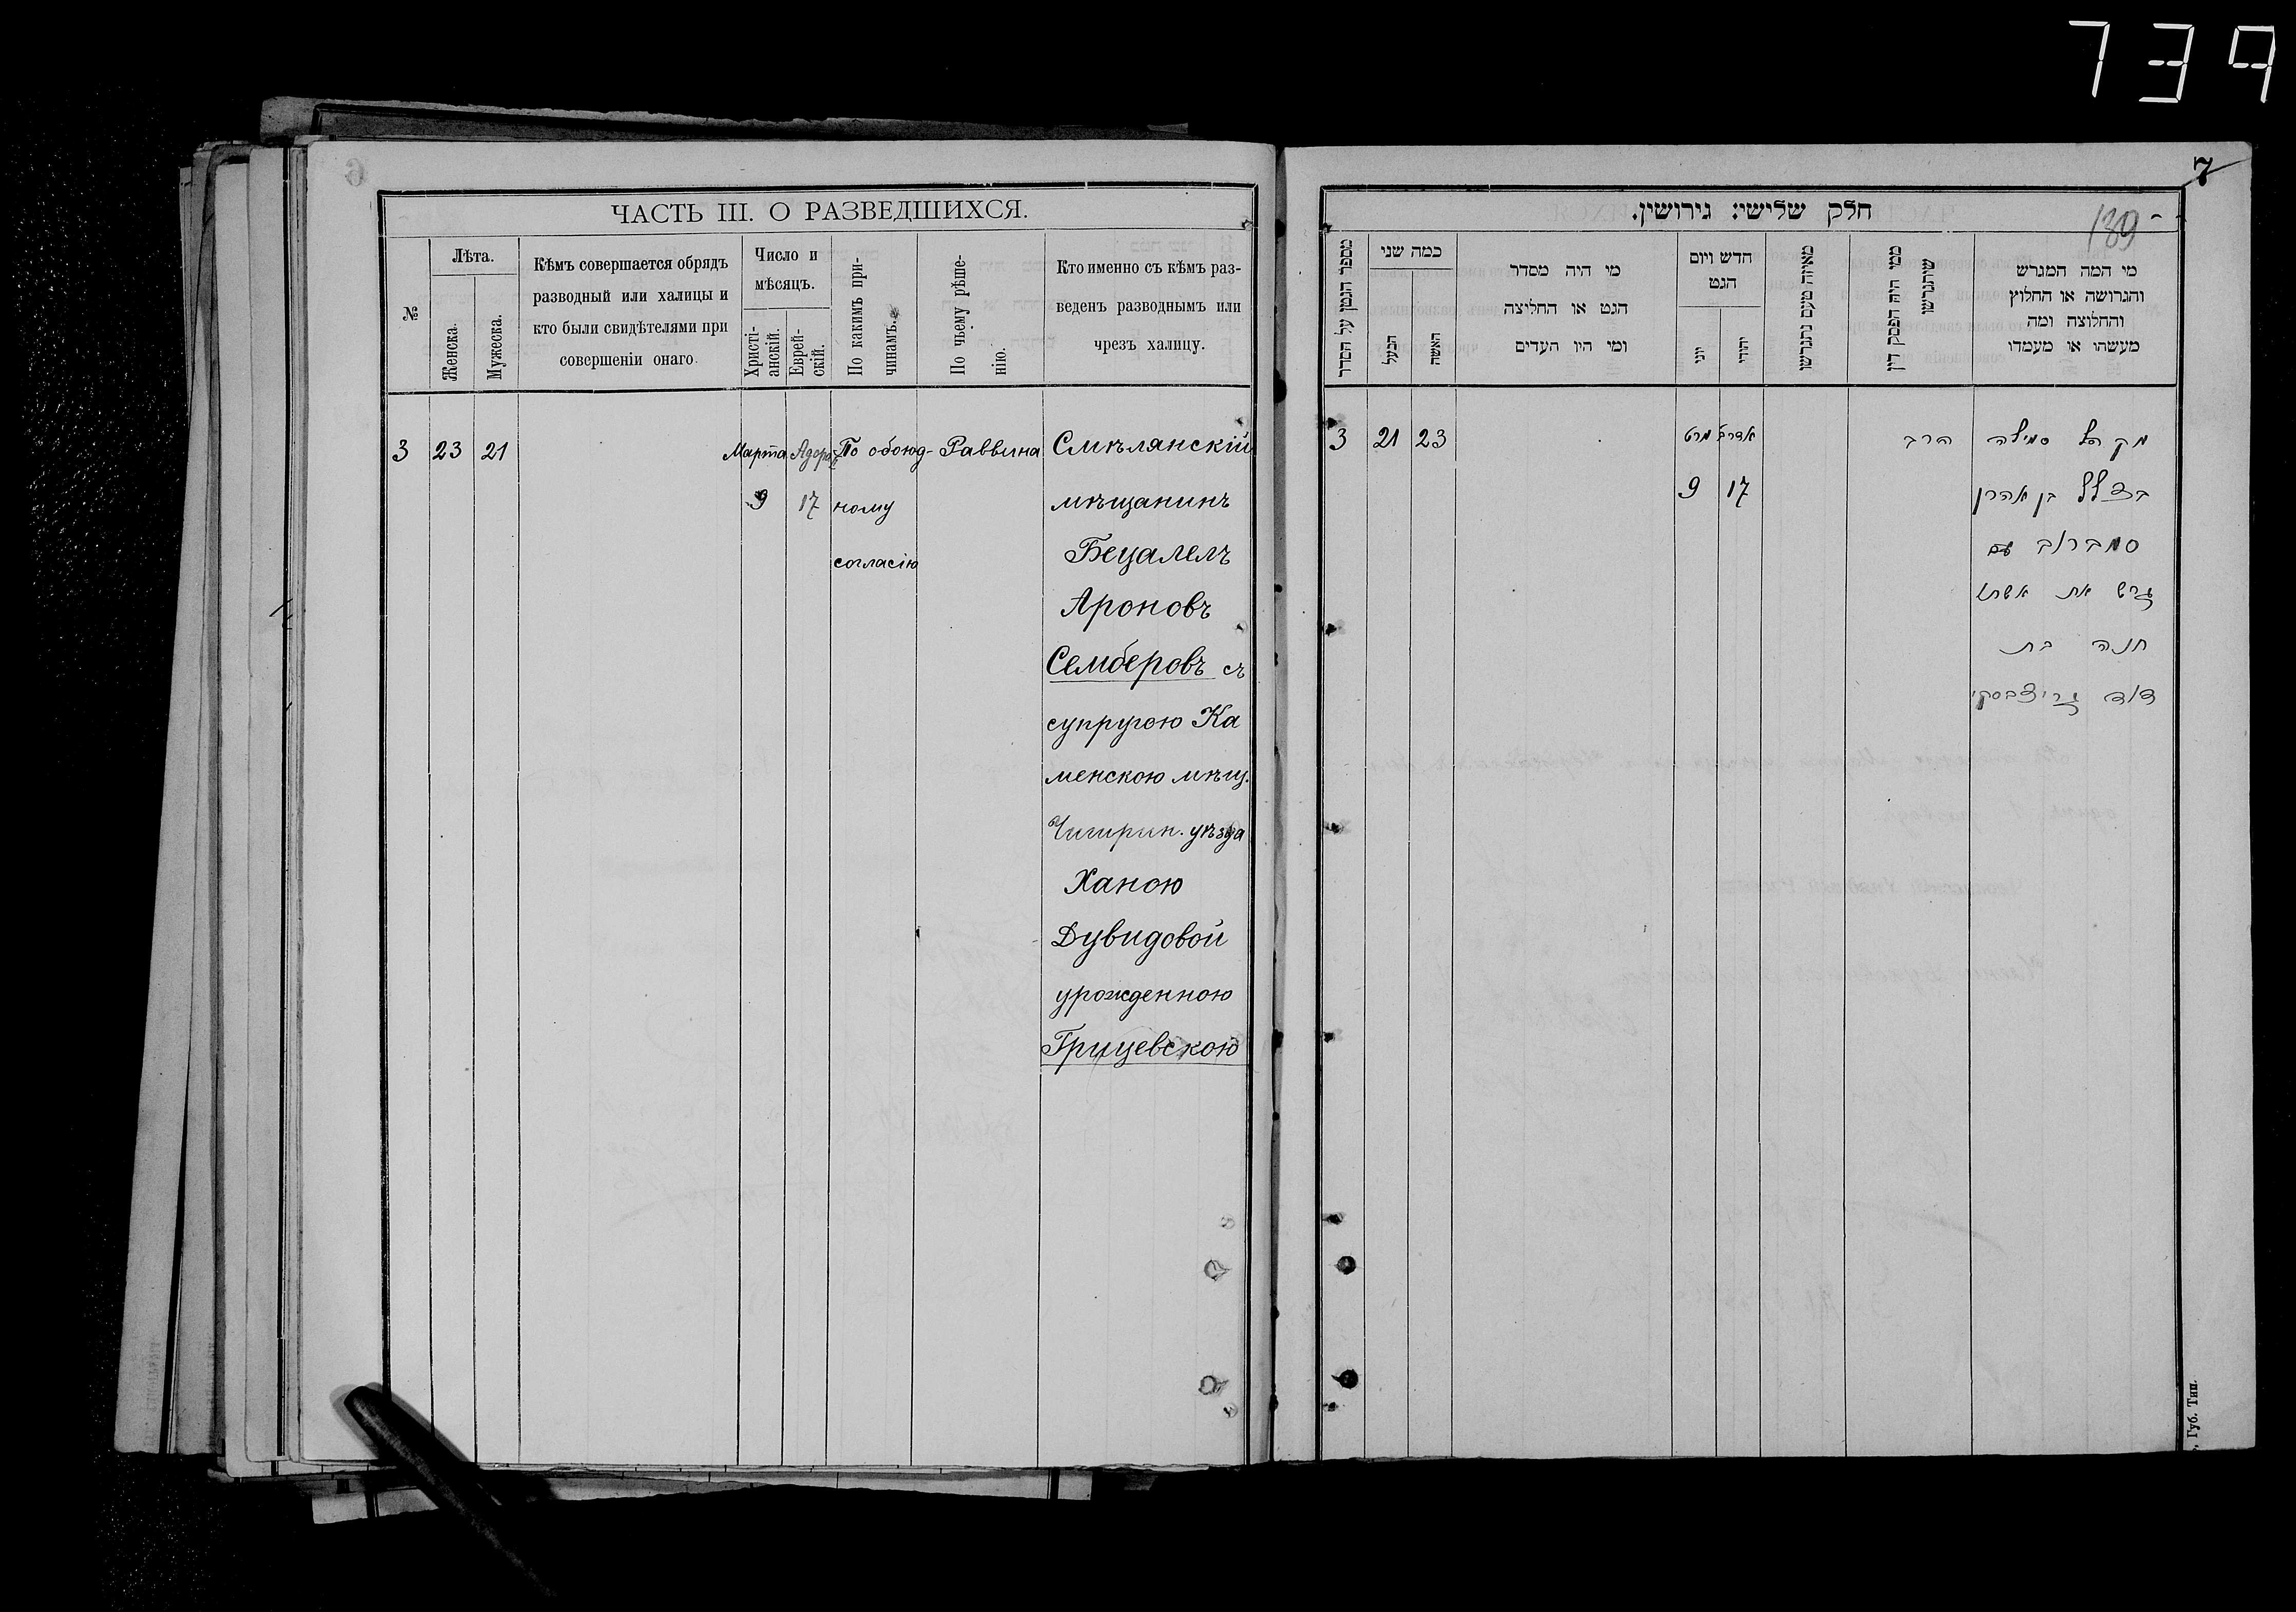 739
7
139
ЧАСТЬ III. О РАЗВЕДШИХСЯ.
№
Лѣта.
Женска.
Мужеска.
Кѣмъ совершается обрядъ
разводный или халицы и
кто были свидѣтелями при
совершеніи онаго.
Число и
мѣсяцъ.
Христі-
анскій.
Еврей-
скій.
По какимъ при-
чинамъ.
По чьему рѣше-
нію.
Кто именно съ кѣмъ раз-
веденъ разводнымъ или
чрезъ халицу.
3
23
21
Марта
9
17
По обоюд-
ному
согласію
Раввина
Смѣлянскій
мѣщанинъ
Бецалелъ
Ароновъ
Семберовъ съ
супругою Ка
менскою мѣщ.
Чигирин. уѣзда
Ханою
Дувидовой
урожденною
Грицевскою
חלק שלישי: גירושין.
מספר הגטין על הסדר
כמה שני
הבעל
האשה
מי היה מסדר
הגט או החליצה
ומי היו העדים
חדש ויום
הגט
יוני
יהודי
מאיזה טעם נתגרשו
ממי היה הפסק דין
שיתגרשו
מי המה המגרש
והגרושה או החלוץ
והחלוצה ומה
מעשהו או מעמדו
3
21
23
מרט
9
17
הרב
מק הל סמילה
בצלל בן אהרן
סמברוב עם
גרש את אשתו
חנה בת
דוד גריצבסקי
Губ. Тип.